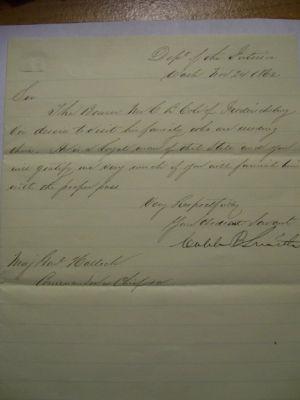 Dept of the Interior
Wash Nov 24 1862
Sir
The Bearer Mr C B Cole of Fredericksburg
Va desires to visit his family who are residing
there. He is a loyal man of that State and you
will gratify me very much if you will furnish him
with the proper pass
Very Respectfully
Your Obedient Servant
Caleb B Smith
Maj Genl Halleck
Commander in Chief